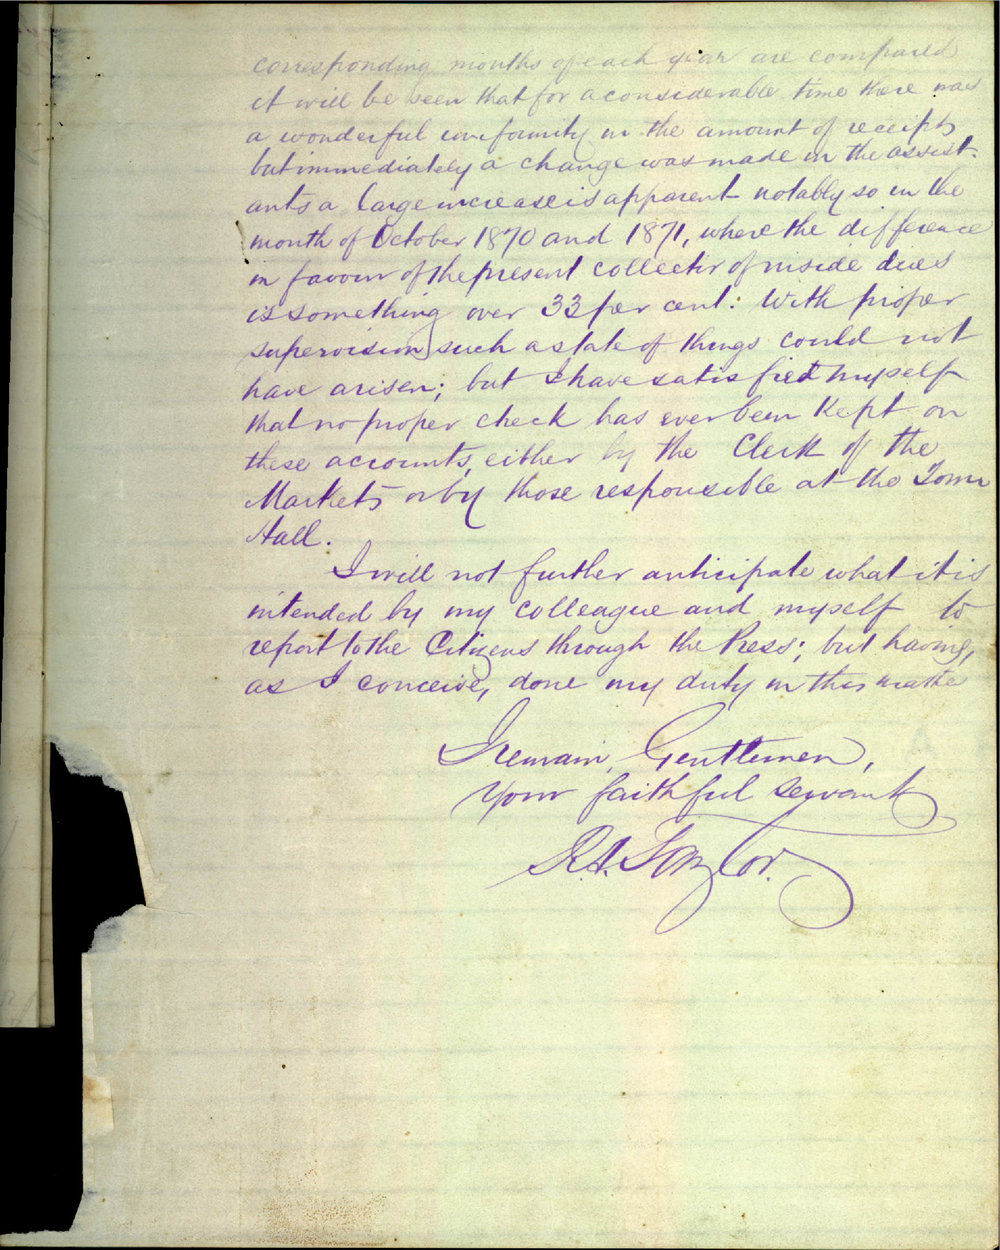 corresponding months of each year are compared
it will be seen that for a considerable time there was
a wonderful uniformity in the amount of receipts
but immediately a change was made in the assist-
ants a large increase is apparent notably so in the
month of October 1870 and 1871, where the difference
in favour of the present collector of inside dues
is something over 33 per cent: With proper
supervision such a state of things could not
have arisen; but I have satisfied myself
that no proper check has ever been kept on
these accounts, either by the Clerk of the
Markets or by those responsible at the Town
Hall.
I will not further anticipate what it is
intended by my colleague and myself to
report to the Citizens through the Press; but having,
as I conceive, done my duty in this matter
I remain, Gentlemen,
Your faithful servant
Taylor.